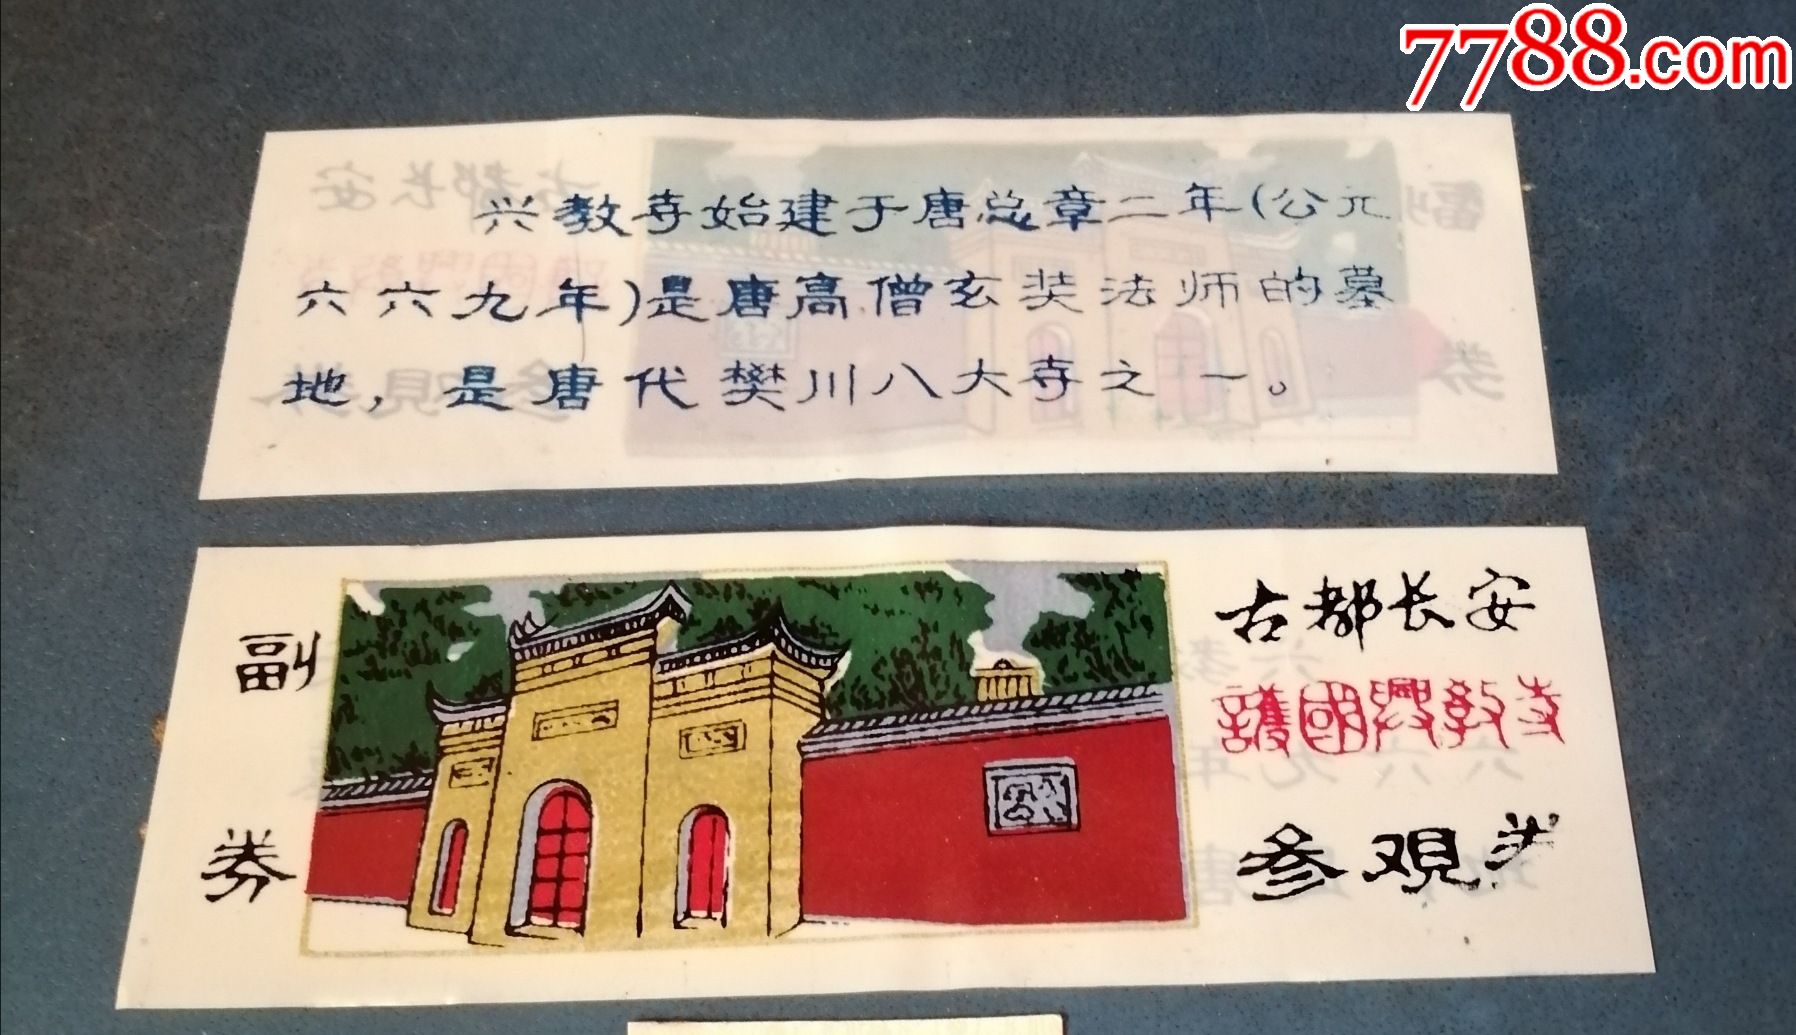 7788.com
兴教寺始建于唐总章二年(公元
六六九年)是唐高僧玄奘法师的墓
地，是唐代樊川八大寺之一。
副
券
古都长安
護國興教寺
参观券